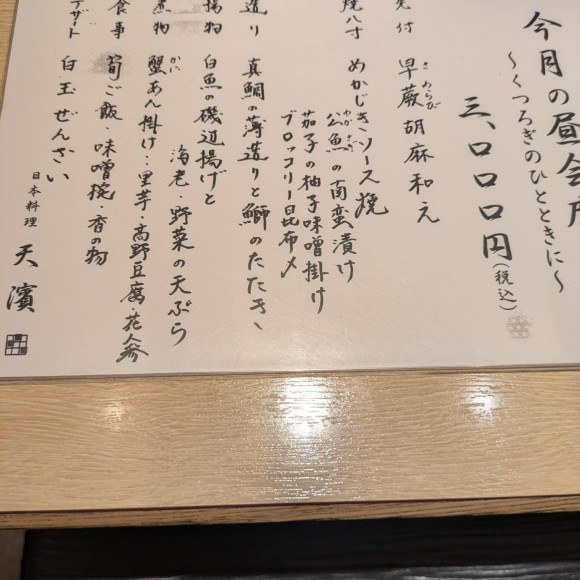 今月の昼会席
〜くつろぎのひとときに〜
三、〇〇〇円(税込)
先付 早蕨胡麻和え
さわらび
焼八寸 めかじきソース焼
公魚の南蛮漬け
わかさぎ
茄子の柚子味噌掛け
ブロッコリー昆布〆
造り 真鯛の薄造りと鰤のたたき
揚物 白魚の磯辺揚げと
海老・野菜の天ぷら
煮物 蟹あん掛け:里芋・高野豆腐・花人参
かに
食事 筍ご飯・味噌椀・香の物
デザート 白玉ぜんざい
日本料理 天濱